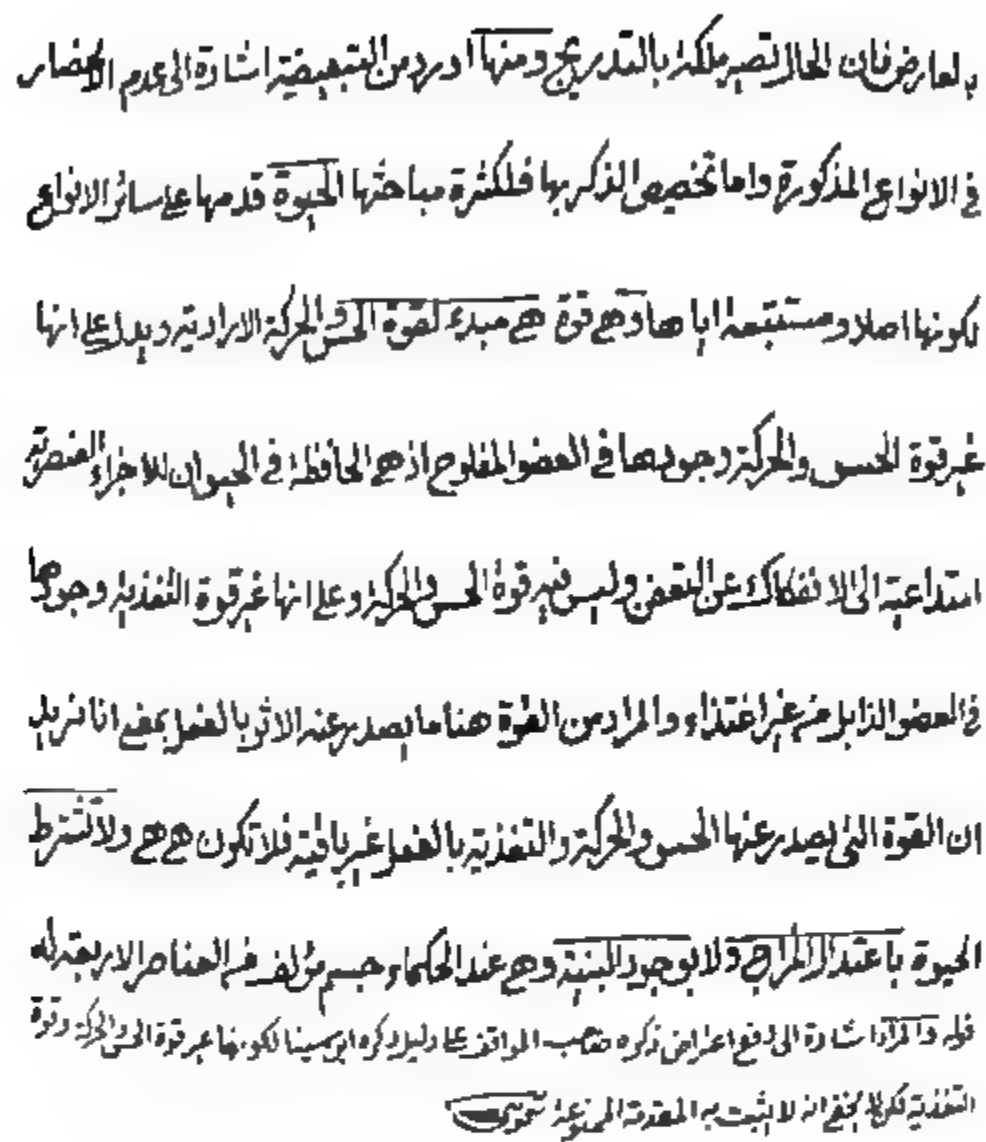 بالعارض فان الحال تصير ملكة بالتدريج ومنها اورد من التبعيضية اشارة الى عدم الانحصار
في الانواع المذكورة واما تخصيص الذكر بها فلكثرة مباحثها الحيوة قدمها على سائر الانواع
لكونها اصلا ومستتبعة اياها وهي قوة هي مبدء لقوة الحس والحركة الارادية ويدل على انها
غير قوة الحس والحركة وجودها في العضو المفلوج اذ هي الحافظة في الحيوان للاجزاء العنصرية
المتداعية الى الانفكاك عن التعفن وليس فيه قوة الحس والحركة وعلى انها غير قوة التغذية وجودها
في العضو الذابل من غير اغتذاء والمراد من القوة هنا ما يصدر عنه الاثر بالفعل بمعنى انا نريد
ان القوة التي يصدر عنها الحس والحركة والتغذية بالفعل غير باقية فلا تكون هي هي ولا تشترط
الحيوة باعتدال المزاج ولا بوجود البنية وهي عند الحكماء جسم مؤلف من العناصر الاربعة له
قوله والمراد اشارة الى دفع اعتراض ذكره صاحب المواقف على دليل ذكره ابن سينا لكونها غير قوة الحس والحركة وقوة
التغذية لكن لا يخفى انه لا يثبت به المقدمة الممنوعة